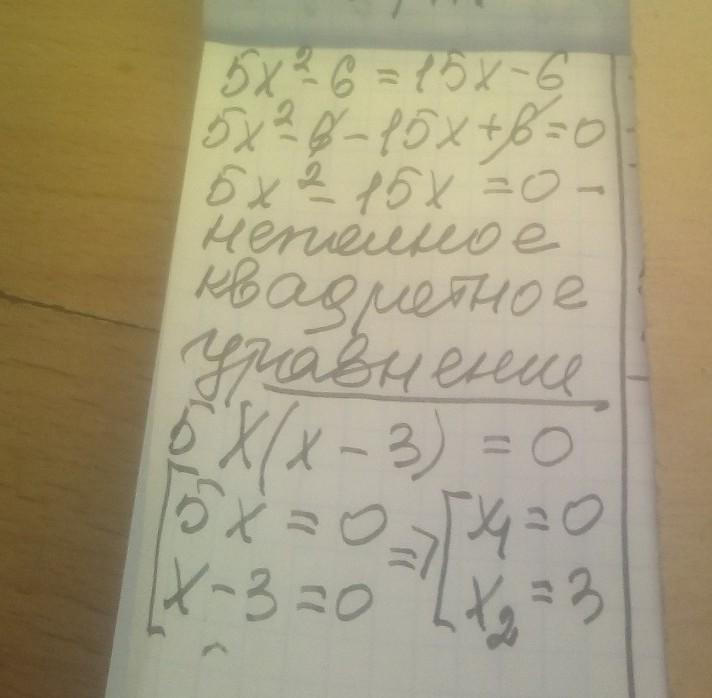 5x² - 6 = 15x - 6
5x² - 6 - 15x + 6 = 0
5x² - 15x = 0 -
неполное
квадратное
уравнение
5x(x - 3) = 0
[5x = 0 => [x₁ = 0
x - 3 = 0 x₂ = 3